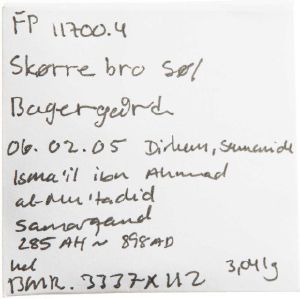 FP 11700.4
Skørrebro Sø/
Bagergaard
06.02.05 Dirhem, Samanide
Isma'il ibn Ahmad
al-Mu'tadid
Samarqand
285 AH ~ 898 AD
hel 3,04 g
BMR. 3337x112